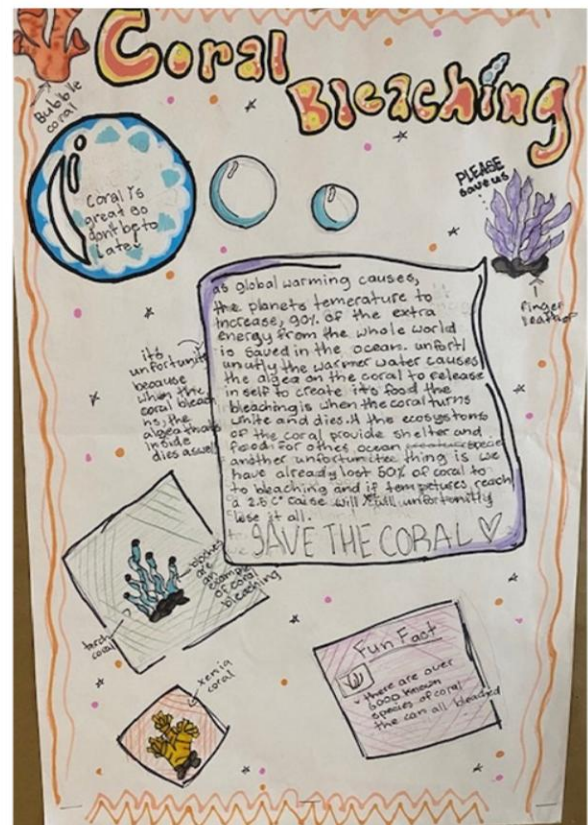 Coral
Bleaching
Bubble
coral
coral is
great so
don't be to
late!
PLEASE
save us
finger
leather
as global warming causes,
the planets temerature to
increase, 90% of the extra
energy from the whole world
is saved in the ocean. unfortl
unutly the warmer water causes
the algea on the coral to release
in self to create it's food the
bleaching is when the coral turns
white and dies. the ecosystoms
of the coral provide shelter and
food for other ocean specie
another unfortunitee thing is we
have already lost 50% of coral to
to bleaching and if tempetures reach
a 2.5 C° caise will still unfortunitly
lose it all.
SAVE THE CORAL
it's
unfortunite
because
when the
coral bleach
ns, the
algea thats
inside
dies aswell
bloches
are
an
example
of coral
bleaching
torch
coral
xenia
coral
Fun Fact
there are over
6000 known
species of coral
the can all bleached